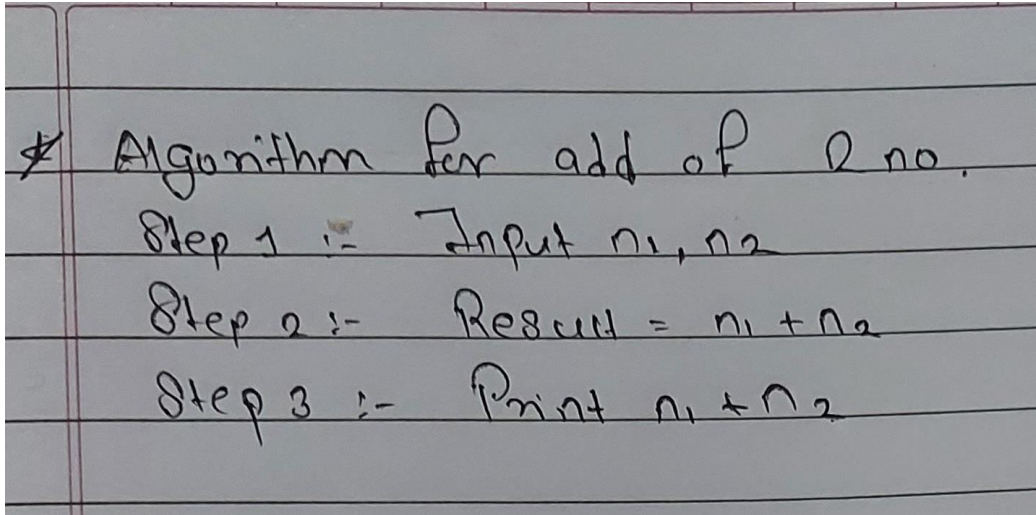 * Algorithm for add of 2 no.
Step 1 :- Input n1, n2
Step 2 :- Result = n1 + n2
Step 3 :- Print n1 + n2